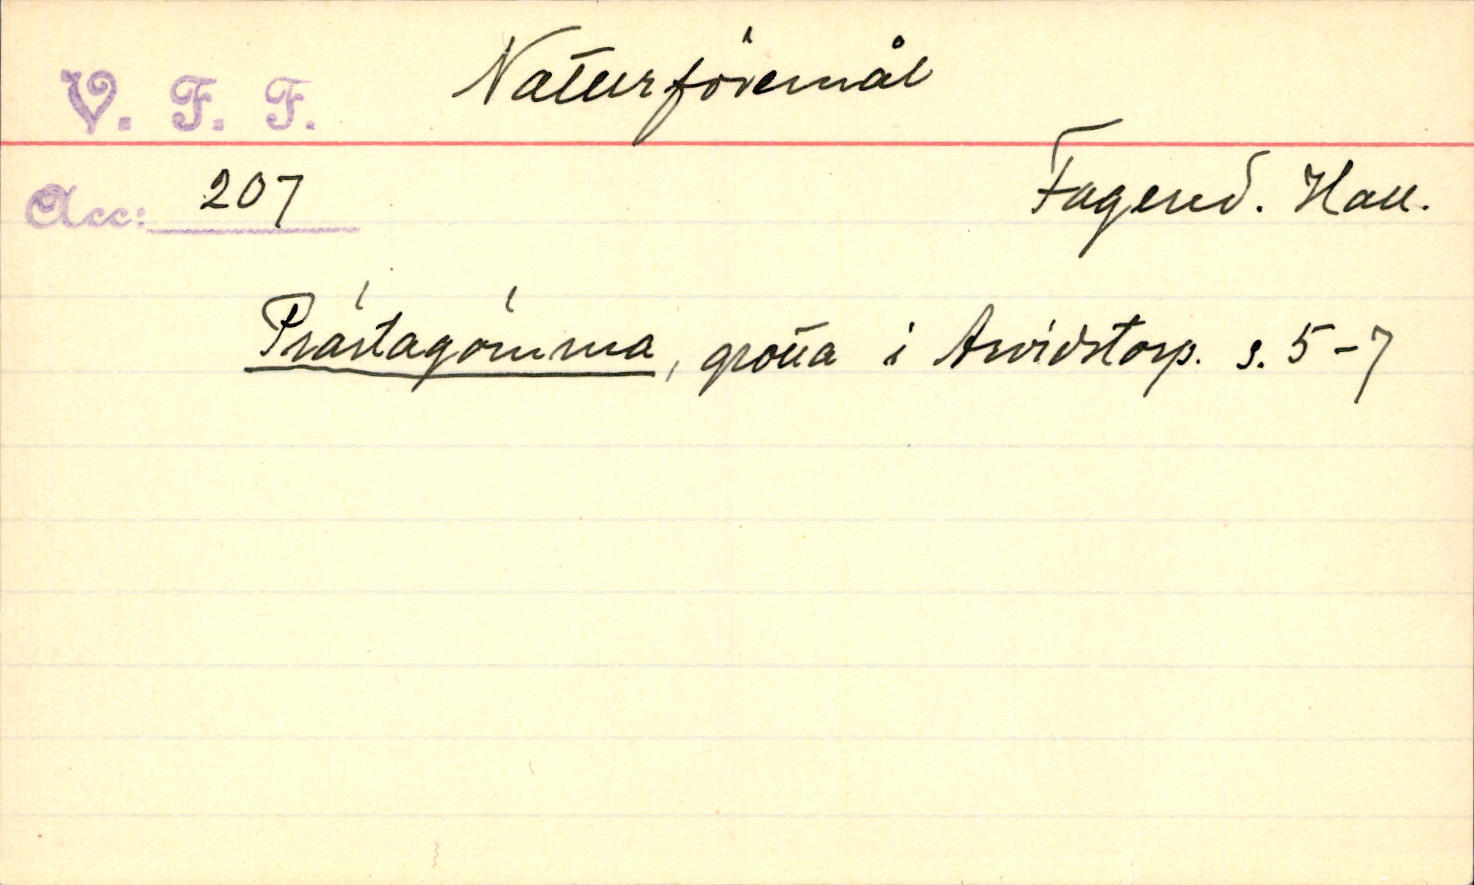 V. F. F. Naturföremål
Acc: 207 Fagered. Hall.
Prästagömma, grotta i Arvidstorp. s. 5-7